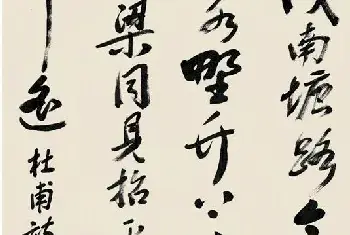 南塘路今
野竹上
梁同見招平
遥
杜甫詩